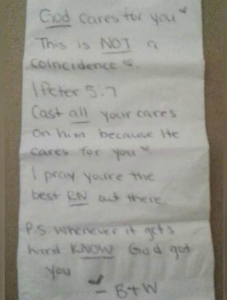 God cares for you
This is NOT a
coincidence
1 Peter 5:7
Cast all your cares
on him because He
cares for you
I pray you're the
best RN out there.
P.S. Whenever it gets
hard KNOW God got
you
- B+W